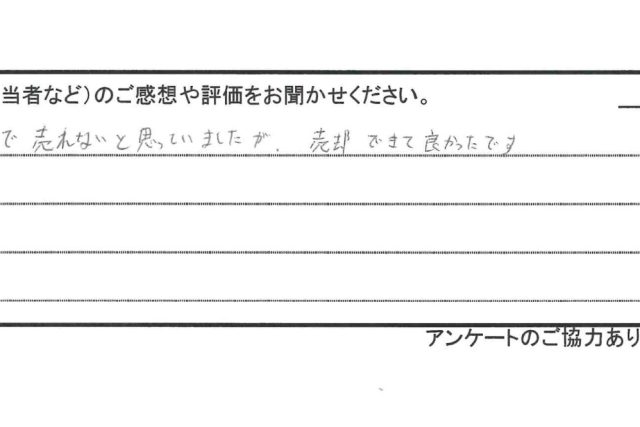 当者など)のご感想や評価をお聞かせください。
で売れないと思っていましたが、売却できて良かったです
アンケートのご協力あり